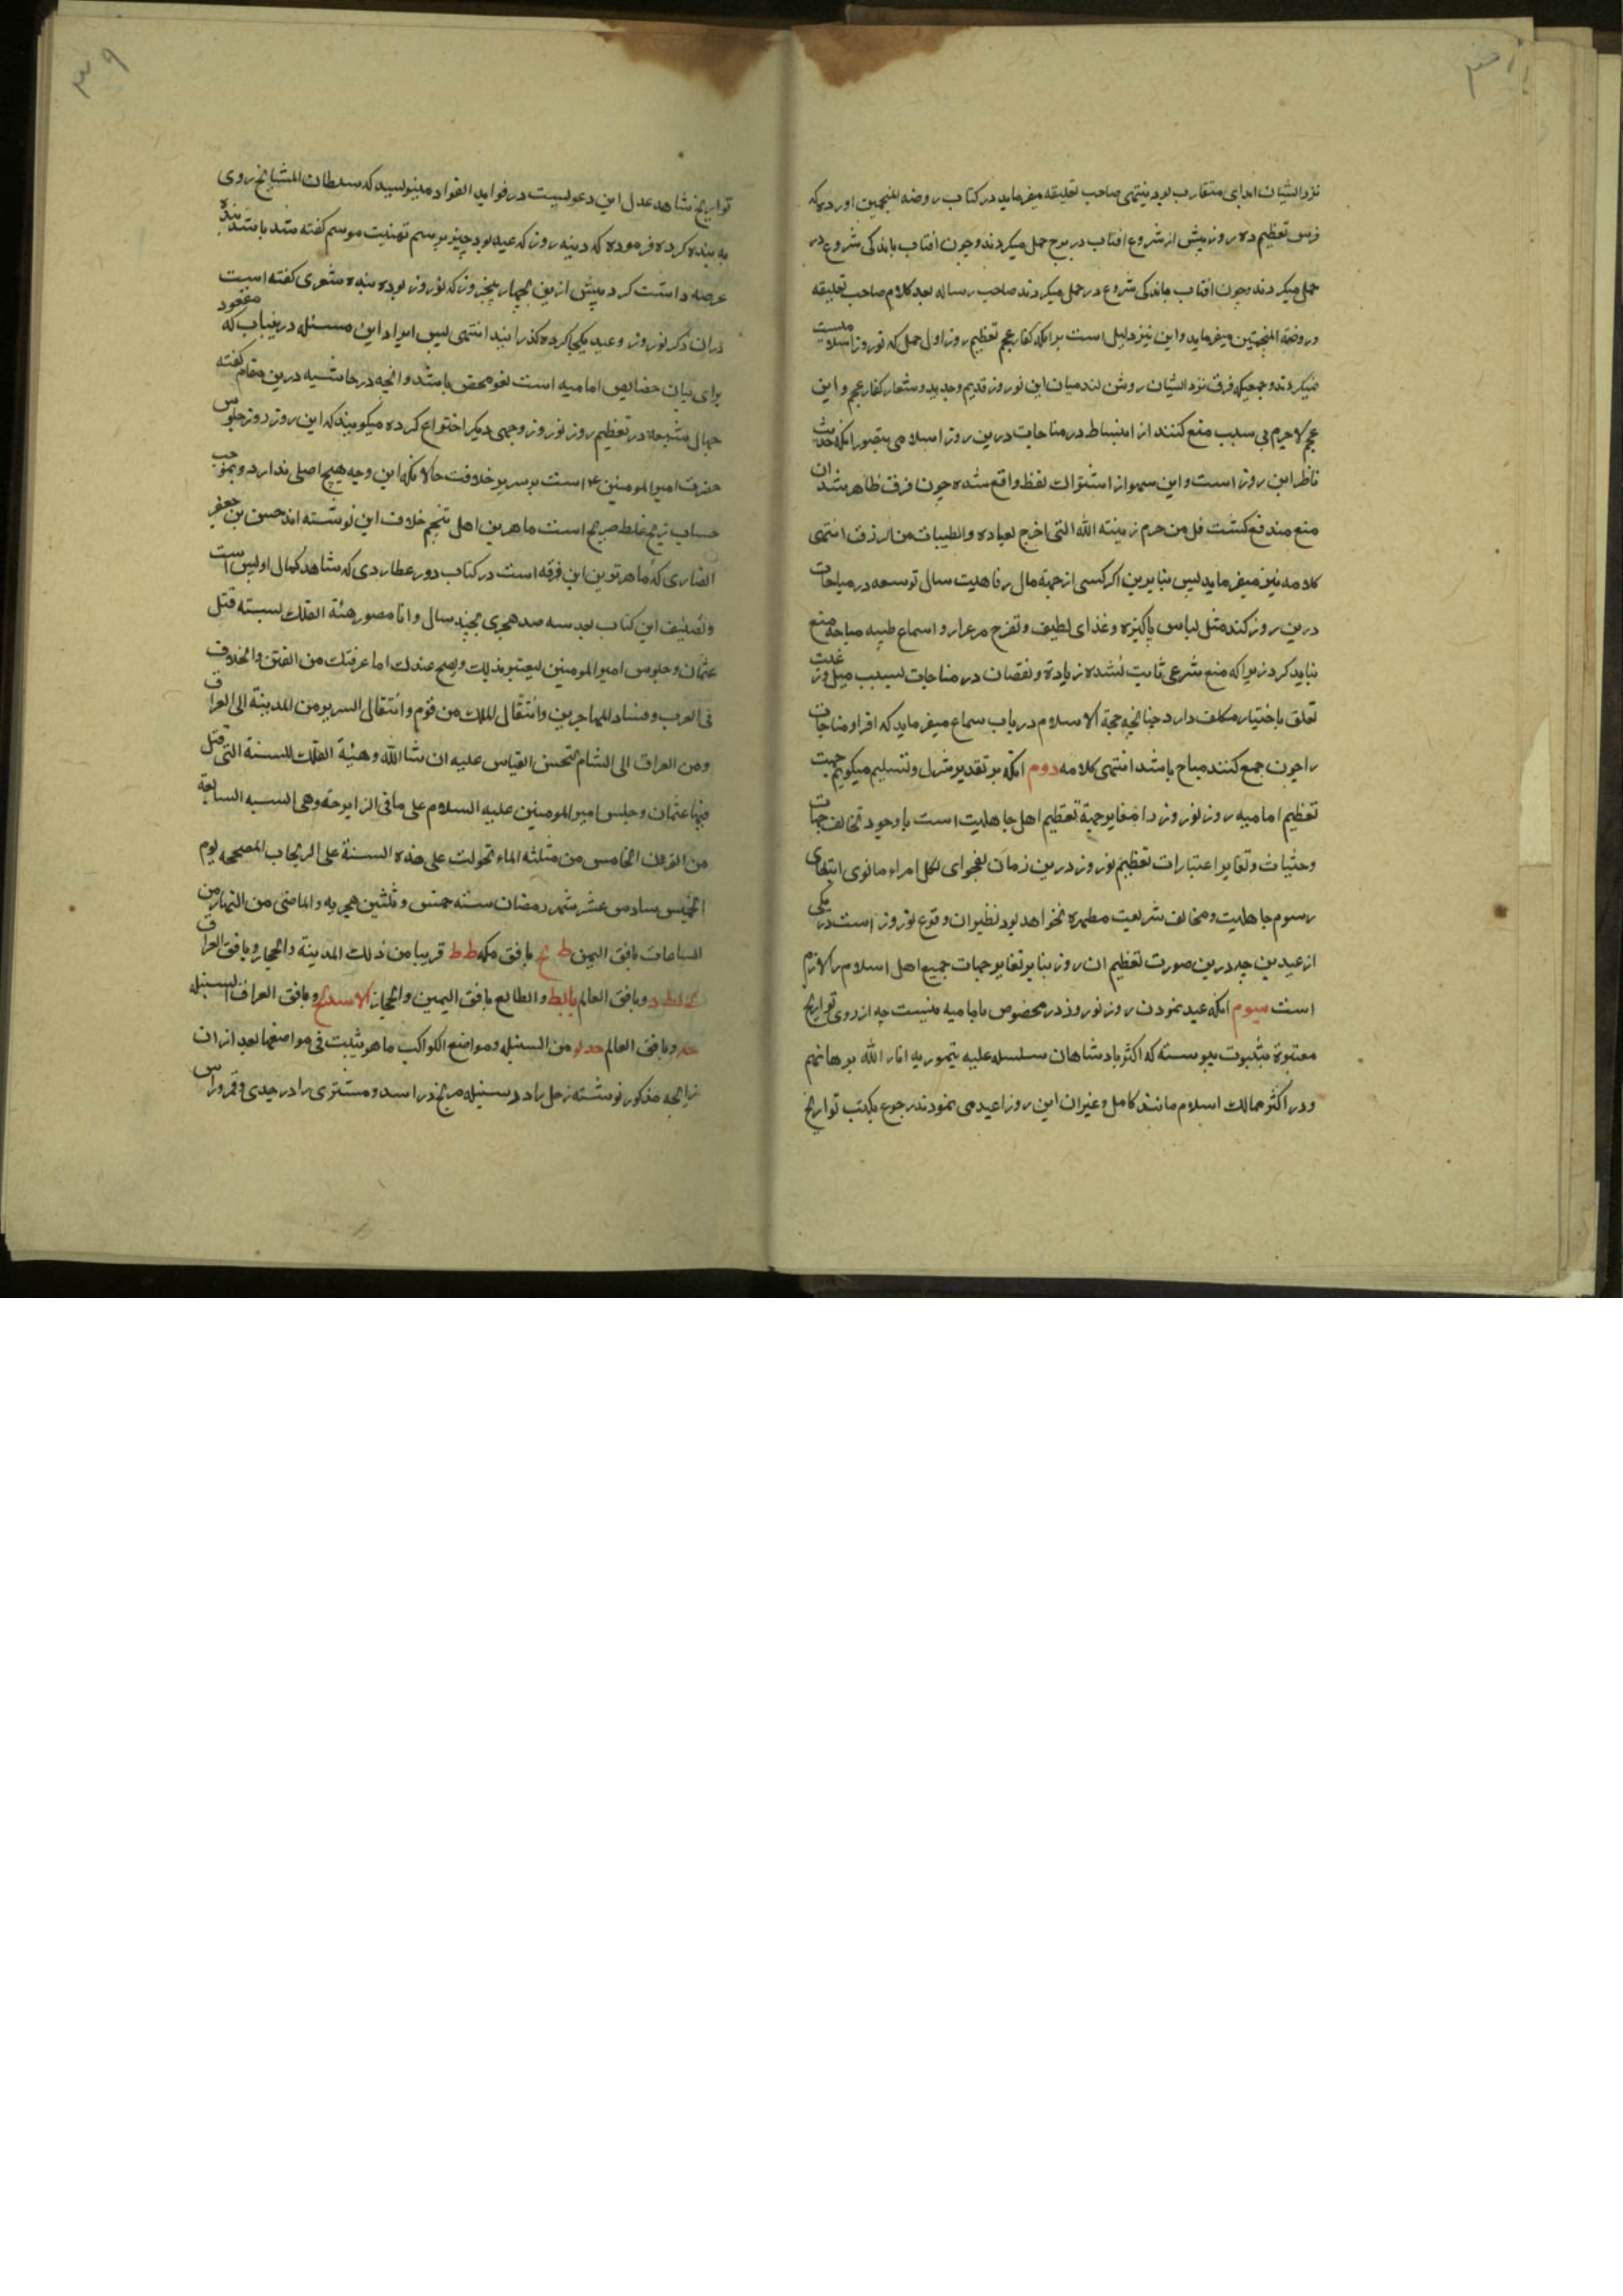 نزد ایشان ابدای متقارب بود نیتهی صاحب تعلیقه میفرماید در کتاب روضة المنجمین اورده که
فرس تعظیم ده روز پیش از شروع افتاب در برج حمل میکردند و چون افتاب باندکی شروع در
حمل میکردند و چون افتاب باندکی شروع در حمل میکردند صاحب رساله بعد کلام صاحب تعلیقه
و روضة المنجمین میفرماید و این نیز دلیل است برانکه کفار عجم تعظیم روز اول حمل که نوروز اسلامیست
نمیکردند و جمعیکه فرق نزد ایشان روشن نشد میان این نوروز قدیم و جدید و شعار کفار عجم و این
عجم لاجرم بی سبب منع کنند از انبساط در مباحات درین روز اسلامی بتصور انکه حدیث
ناظر این روز است و این سهو از اشتراک لفظ واقع شده چون فرق ظاهر شد ان
منع مندفع کشت قل من حرم زینة الله التی اخرج لعباده والطیبات من الرزق انتهی
کلامه نیز میفرماید پس بنابرین اکر کسی از جهة مال رفاهیت سالی توسعه در مباحات
درین روز کند مثل لباس پاکیزه و غذای لطیف و تفرج مرغزار و اسماع طیبه مباحه منع
نباید کرد زیرا که منع شرعی ثابت نشده زیادة و نقصان در مباحات بسبب میل و رغبت
تعلق باختیار مکلف دارد چنانچه حجة الاسلام در باب سماع میفرماید که افراد مباحات
را چون جمع کنند مباح باشد انتهی کلامه دوم انکه بر تقدیر تنزل و تسلیم میکویم جهت
تعظیم امامیه روز نوروز را مغایر جهة تعظیم اهل جاهلیت است با وجود تخالف جهات
و حثیات و تغایر اعتبارات تعظیم نوروز درین زمان بفحوای لکل امرء مانوی ابتهای
رسوم جاهلیت و مخالف شریعت مطهره نخواهد بود نظیر ان وقوع نوروز است در یکی
از عیدین چه درین صورت تعظیم ان روز بنا بر تغایر جهات جمیع اهل اسلام را لازم
است سیوم انکه عید نمودن روز نوروز در مخصوص با امامیه نیست چه از روی تواریخ
معتبرة بثبوت پیوسته که اکثر پادشاهان سلسله علیه تیموریه انار الله برهانهم
و در اکثر ممالک اسلام مانند کابل و غیر ان این روز را عید می نمودند رجوع بکتب تواریخ
۳۹
تواریخ شاهد عدل این دعویست در فواید الفواد مینویسد که سلطان المشایخ روی
به بنده کرده فرموده که دینه روز که عید بود چیز برسم تهنیت موسم کفته شد باشد بنده
عرضه داشت کرد پیش ازین بچهار پنج روز که نوروز بوده بنده شعری کفته است
دران ذکر نوروز و عید یکجا کرده کذرانید انتهی پس ایراد این مسئله درینباب که معقود
برای بیان خصایص امامیه است لغو محض باشد و انچه در حاشیه درین مقام کفته
جهال شیعه در تعظیم روز نوروز وجهی دیکر اختراع کرده میکویند که این روز روز جلوس
حضرت امیر المومنین ع است بر سریر خلافت حالانکه این وجه هیچ اصلی ندارد و بموجب
حساب زیج غلط صریح است ماهرین اهل تنجم خلاف این نوشته اند حسن بن جعفر
انصاری که ماهرترین این فرقه است در کتاب دور عطاردی که شاهد کمال اوبس است
و تصنیف این کتاب بعد سه صد هجری بچند سال و انا مصور هیئة الفلک بسبته قتل
عثمان و جلوس امیر المومنین لیعتبر بذلک ویصح عندک اما عرفتک من الفتن والخلاف
فی العرب وفساد المهاجرین وانتقال الملک من قوم وانتقال السریر من المدینة الی العراق
ومن العراق الی الشام لتحسن القیاس علیه ان شا الله وهیئة الفلک للسنة التی قتل
فیها عثمان وجلس امیر المومنین علیه السلام علی مافی الزایرجة وهی السنه السابعة
من القران الخامس من مثلثه الماء تحولت علی هذه السنة علی الزیجاب المصححه یوم
الخمیس سادس عشر شهر رمضان سنة خمس وثلثین هجریه والماضی من النهار من
الساعات بافق الیمن ط ح بافق مکه ط ط قریبا من ذلک المدینة والحجاز وبافق العراق
ح لط د وبافق العالم یا بط والطالع بافق الیمین والحجاز الاسدح وبافق العراق السنبله
وبافق العالم من السنبله ومواضع الکواکب ماهو یثبت فی مواضعها بعد از ان
زایجه مذکور نوشته زحل را در سنبله مریخ در اسد و مشتری را در جدی و قمر و راس